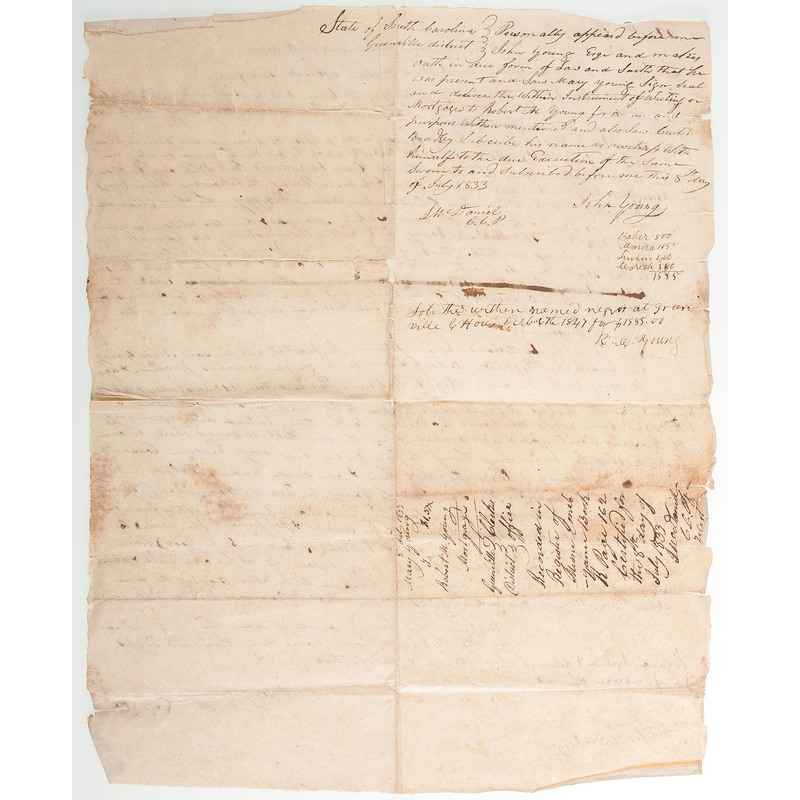 State of South Carolina } Personally appeard before me
Greenville district } John Young Esqr and makes
oath in due form of Law and Saith that he
was present and Saw Mary Young Sign Seal
and deliver the Within Instrument of Writing or
Mortgage to Robert M Young for the use and
purposes Within mentiond and also Saw Curtis
Bradley Subscribe his name as With
himself to the due Execution of the Same
Sworn to and Subscribed before me this 8th day
of July 1833
John Young
D McDaniel
C.C.P
Baker 500
105
400
500
1585
Sold the within named negros at green
ville C House 1847 for $1585.00
R. M. Young
Mary Young
to
Robert M Young
Mortgage
Greenville } Clerks
District } office
Recorded in
Register of
Mesne Conveyance Book
Page 162
Certified for
this 8th day of
July 1833
D McDaniel